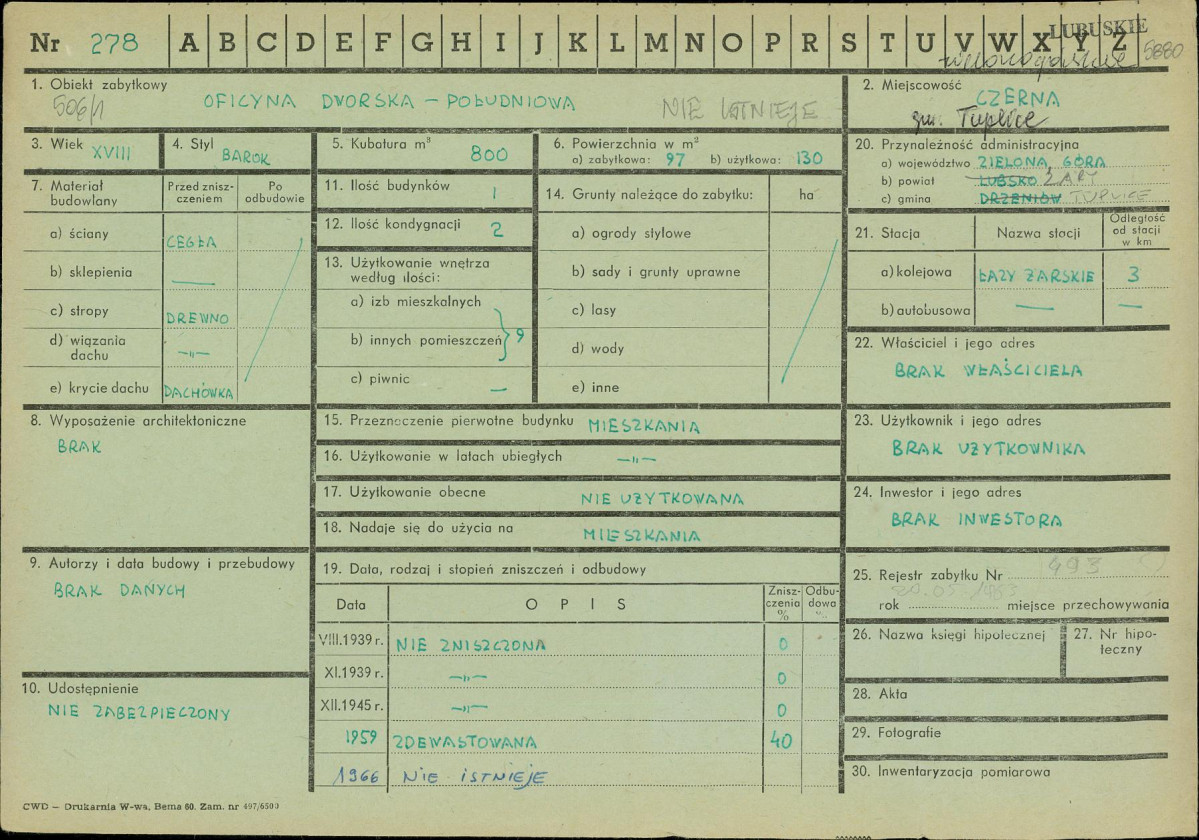 Nr 278 A B C D E F G H I J K L M N O P R S T U V W X Y Z
LUBUSKIE
5880
1. Obiekt zabytkowy
506/1 OFICYNA DWORSKA – POŁUDNIOWA NIE ISTNIEJE
2. Miejscowość
CZERNA
gm. Tuplice
3. Wiek XVIII
4. Styl BAROK
5. Kubatura m³ 800
6. Powierzchnia w m²
a) zabytkowa: 97 b) użytkowa: 130
7. Materiał budowlany
Przed zniszczeniem
Po odbudowie
a) ściany CEGŁA
b) sklepienia —
c) stropy DREWNO
d) wiązania dachu —„—
e) krycie dachu DACHÓWKA
8. Wyposażenie architektoniczne
BRAK
9. Autorzy i data budowy i przebudowy
BRAK DANYCH
10. Udostępnienie
NIE ZABEZPIECZONY
11. Ilość budynków 1
12. Ilość kondygnacji 2
13. Użytkowanie wnętrza
według ilości:
a) izb mieszkalnych
b) innych pomieszczeń } 9
c) piwnic —
14. Grunty należące do zabytku: ha
a) ogrody stylowe
b) sady i grunty uprawne
c) lasy
d) wody
e) inne
15. Przeznaczenie pierwotne budynku MIESZKANIA
16. Użytkowanie w latach ubiegłych —„—
17. Użytkowanie obecne NIE UŻYTKOWANA
18. Nadaje się do użycia na MIESZKANIA
19. Data, rodzaj i stopień zniszczeń i odbudowy
Data OPIS Zniszczenia % Odbudowa %
VIII.1939 r. NIE ZNISZCZONA 0
XI.1939 r. —„— 0
XII.1945 r. —„— 0
1959 ZDEWASTOWANA 40
1966 NIE ISTNIEJE
20. Przynależność administracyjna
a) województwo ZIELONA GÓRA
b) powiat LUBSKO ŻARY
c) gmina DRZENIÓW TUPLICE
21. Stacja Nazwa stacji Odległość od stacji w km
a) kolejowa ŁAZY ŻARSKIE 3
b) autobusowa — —
22. Właściciel i jego adres
BRAK WŁAŚCICIELA
23. Użytkownik i jego adres
BRAK UŻYTKOWNIKA
24. Inwestor i jego adres
BRAK INWESTORA
25. Rejestr zabytku Nr 493
rok 20.05.1963 miejsce przechowywania
26. Nazwa księgi hipotecznej
27. Nr hipoteczny
28. Akta
29. Fotografie
30. Inwentaryzacja pomiarowa
CWD – Drukarnia W-wa, Bema 60. Zam. nr 497/6500